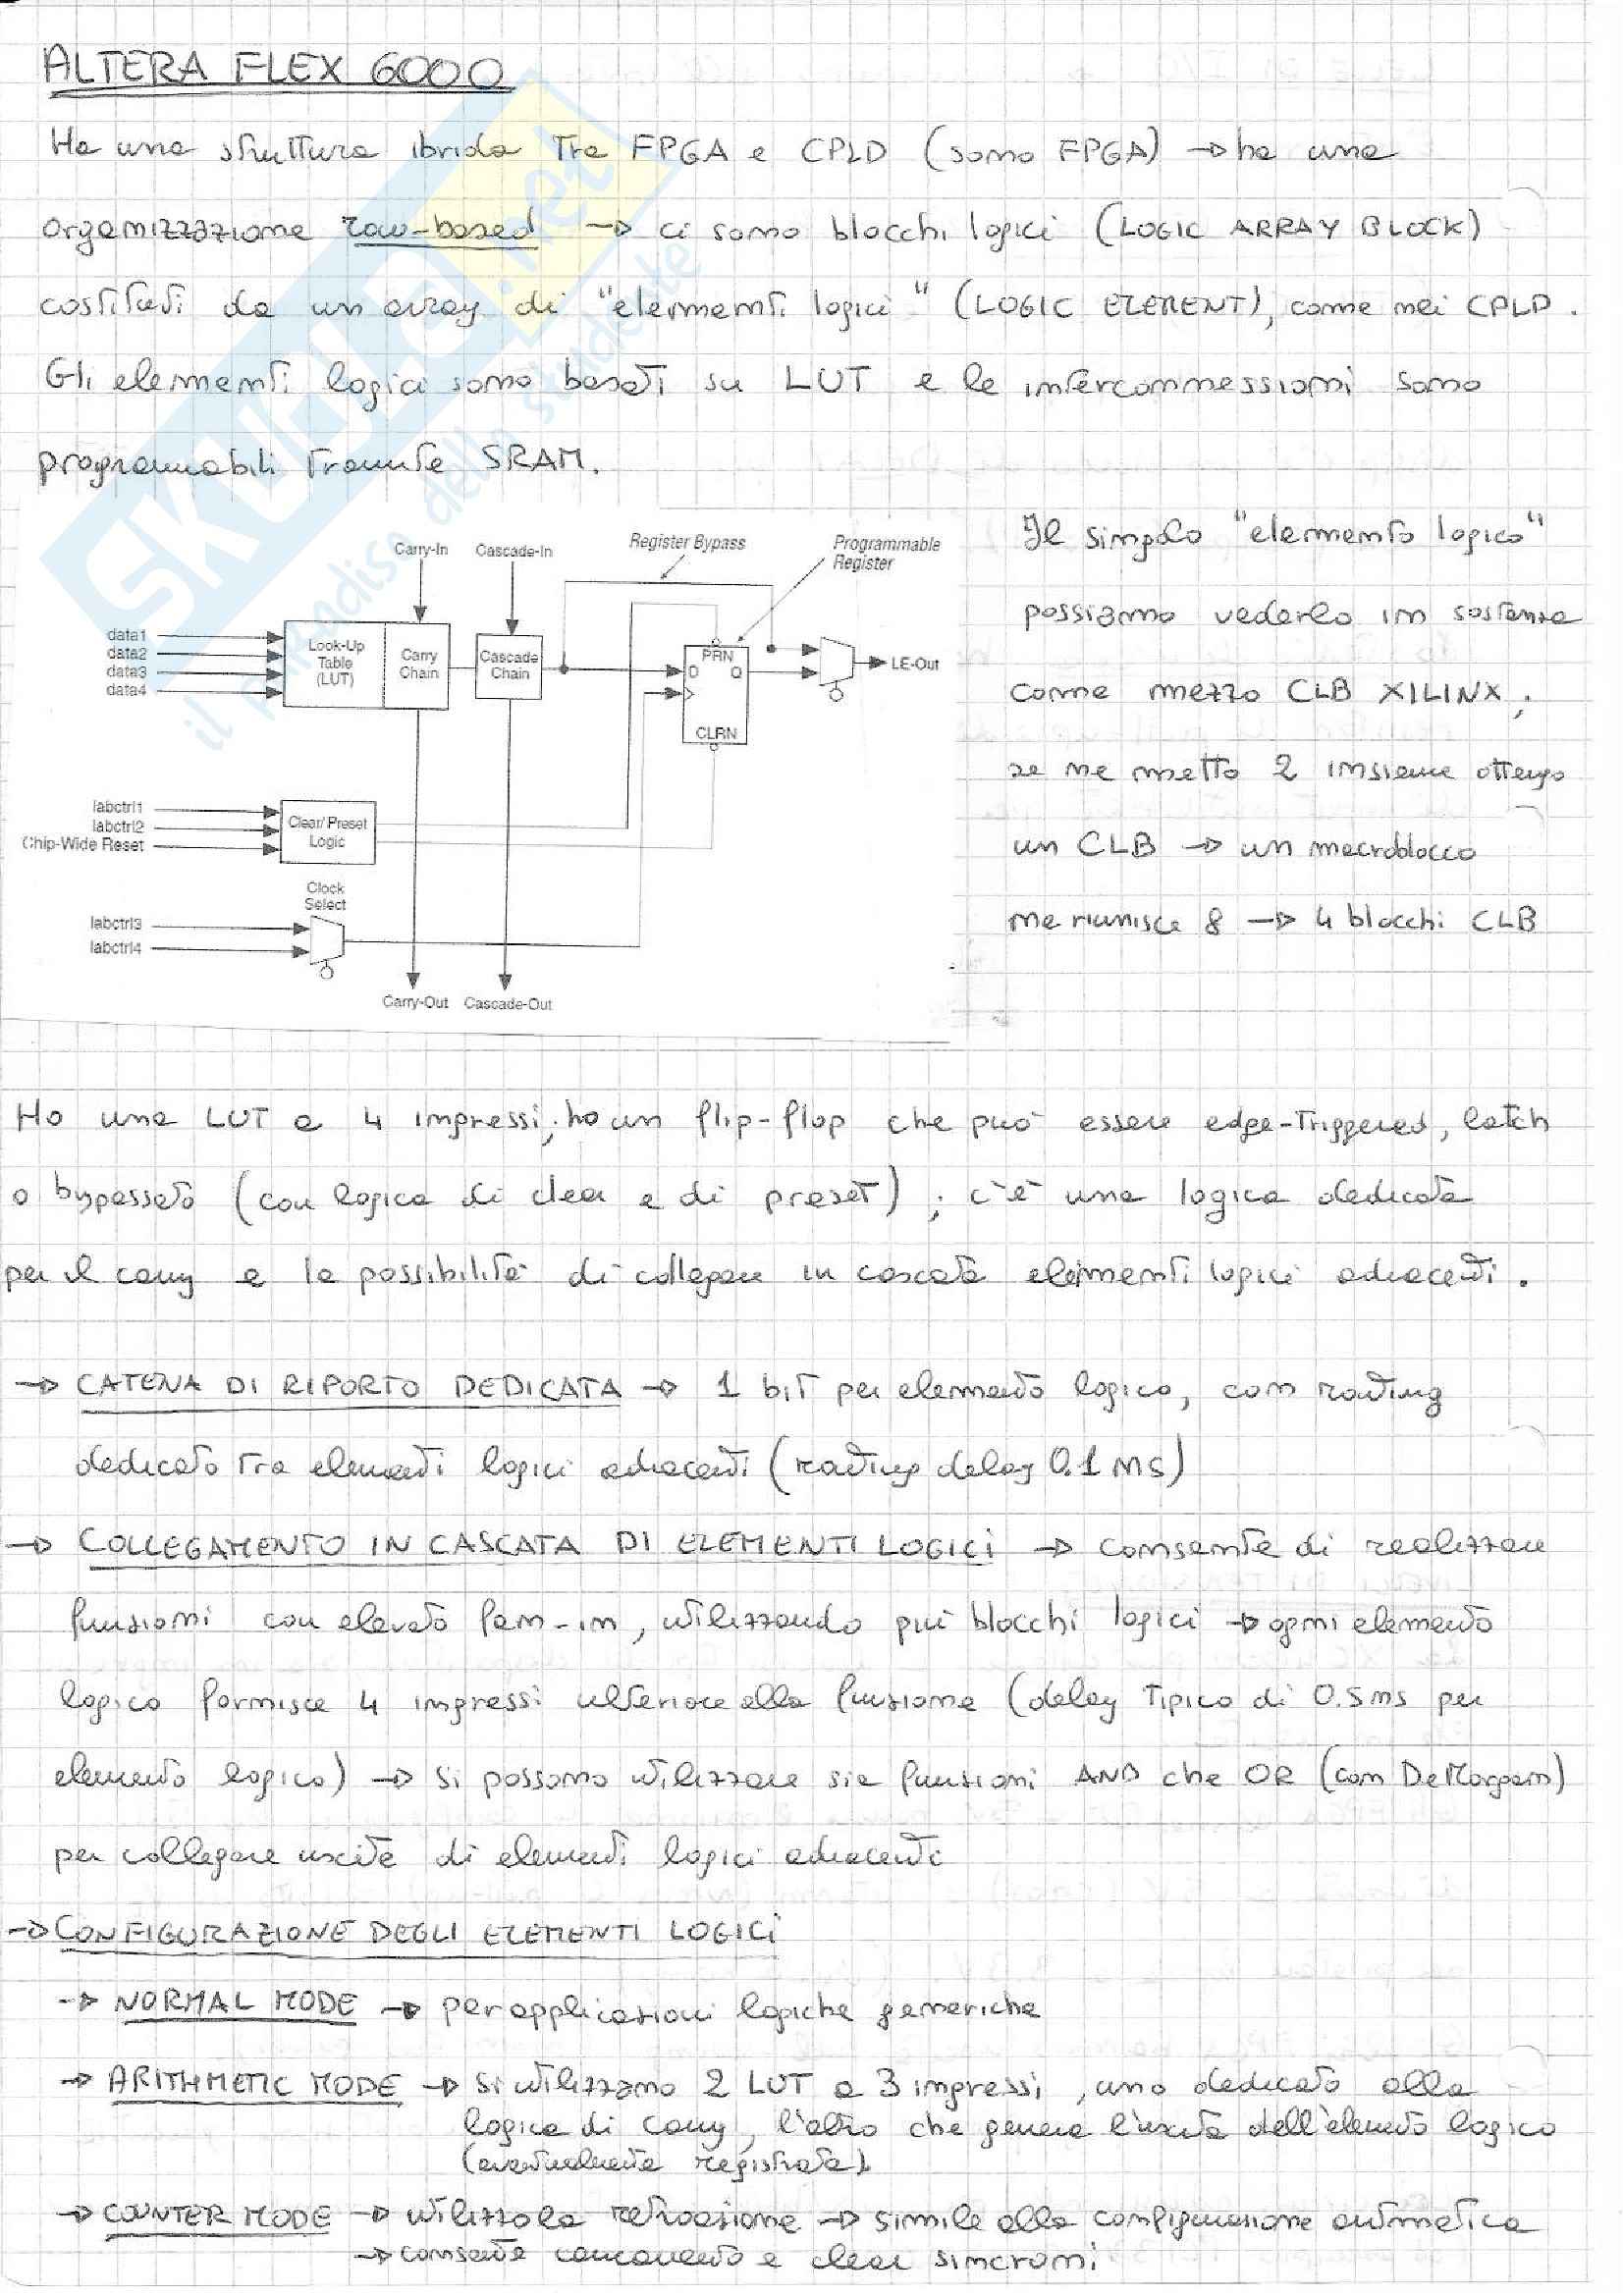 ALTERA FLEX 6000
Ha una struttura ibrida tra FPGA e CPLD (sono FPGA) → ha una
organizzazione row-based → ci sono blocchi logici (LOGIC ARRAY BLOCK)
costituiti da un array di "elementi logici" (LOGIC ELEMENT), come nei CPLD.
Gli elementi logici sono basati su LUT e le interconnessioni sono
programmabili tramite SRAM.
SKUOLA.net
il paradiso dello studente
Il singolo "elemento logico"
possiamo vederlo in sostanza
come mezzo CLB XILINX;
se ne metto 2 insieme ottengo
un CLB → un macroblocco
ne riunisce 8 → 4 blocchi CLB
Carry-In Cascade-In
Register Bypass
Programmable
Register
data1
data2
data3
data4
Look-Up
Table
(LUT)
Carry
Chain
Cascade
Chain
PRN
D Q
CLRN
LE-Out
labctrl1
labctrl2
Chip-Wide Reset
Clear/Preset
Logic
Clock
Select
labctrl3
labctrl4
Carry-Out Cascade-Out
Ho una LUT a 4 ingressi; ho un flip-flop che può essere edge-triggered, latch
o bypassato (con logica di clear e di preset); c'è una logica dedicata
per il carry e la possibilità di collegare in cascata elementi logici adiacenti.
→ CATENA DI RIPORTO DEDICATA → 1 bit per elemento logico, con routing
dedicato tra elementi logici adiacenti (routing delay 0.1 ns)
→ COLLEGAMENTO IN CASCATA DI ELEMENTI LOGICI → consente di realizzare
funzioni con elevato fan-in, utilizzando più blocchi logici → ogni elemento
logico fornisce 4 ingressi ulteriore alla funzione (delay tipico di 0.5 ns per
elemento logico) → si possono utilizzare sia funzioni AND che OR (con DeMorgan)
per collegare uscite di elementi logici adiacenti
→ CONFIGURAZIONE DEGLI ELEMENTI LOGICI
→ NORMAL MODE → per applicazioni logiche generiche
→ ARITHMETIC MODE → si utilizzano 2 LUT a 3 ingressi, uno dedicato alla
logica di carry, l'altro che genera l'uscita dell'elemento logico
(eventualmente registrata)
→ COUNTER MODE → utilizza la retroazione → simile alla configurazione aritmetica
→ consente caricamento e clear sincroni